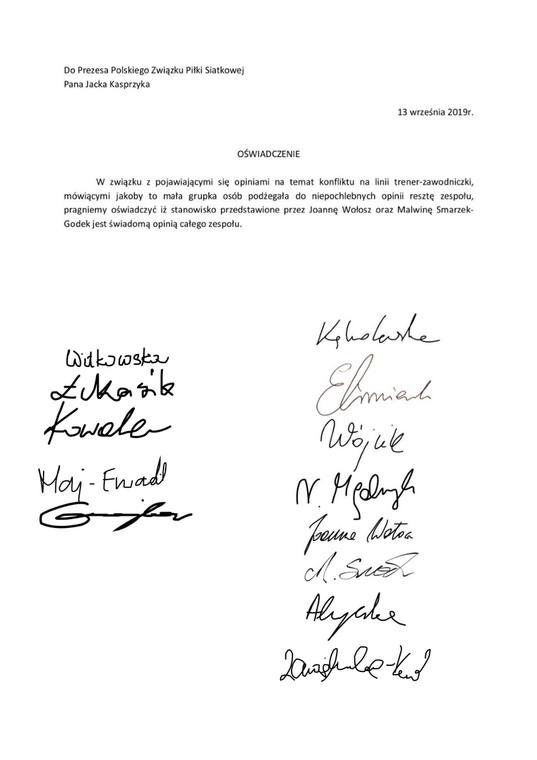 Do Prezesa Polskiego Związku Piłki Siatkowej
Pana Jacka Kasprzyka
13 września 2019r.
OŚWIADCZENIE
W związku z pojawiającymi się opiniami na temat konfliktu na linii trener-zawodniczki,
mówiącymi jakoby to mała grupka osób podżegała do niepochlebnych opinii resztę zespołu,
pragniemy oświadczyć iż stanowisko przedstawione przez Joannę Wołosz oraz Malwinę Smarzek-
Godek jest świadomą opinią całego zespołu.
Witkowska
Łukasik
Maj-Erwardt
Wójcik
N. Mędrzyk
Joanna Wołosz